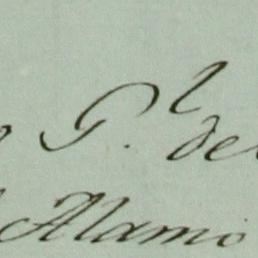 G.l del
Alamo